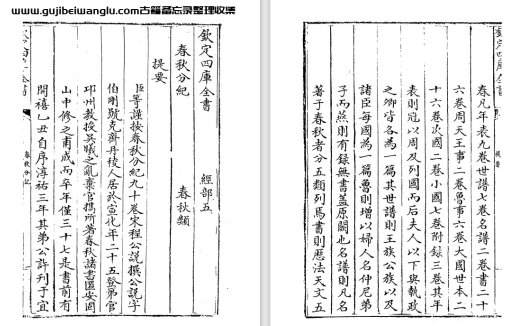 www.gujibeiwanglu.com古籍备忘录整理收集
欽定四庫全書　經部五
春秋分紀　春秋類
提要
臣等謹按春秋分紀九十卷宋程公説撰公説字
伯剛號克齋丹稜人居於宣化年二十五登第官
邛州教授吳曦之亂棄官攜所著春秋諸書匿安固
山中修之甫成而卒年僅三十七是書前有
開禧乙丑自序淳祐三年其弟公許刊于宜
春凡年表九卷世譜七卷名譜二卷書二十
六卷周天王事二卷魯事六卷大國世本二
十六卷次國二卷小國七卷附錄三卷其年
表則冠以周及列國而后夫人以下與執政
之卿皆各為一篇其世譜則王族公族以及
諸臣每國為一篇魯則增以婦人名仲尼弟
子而燕則有録無書蓋原闕也名譜則凡名
著于春秋者分五類列焉書則厯法天文五
欽定四庫全書
提要
春秋分紀